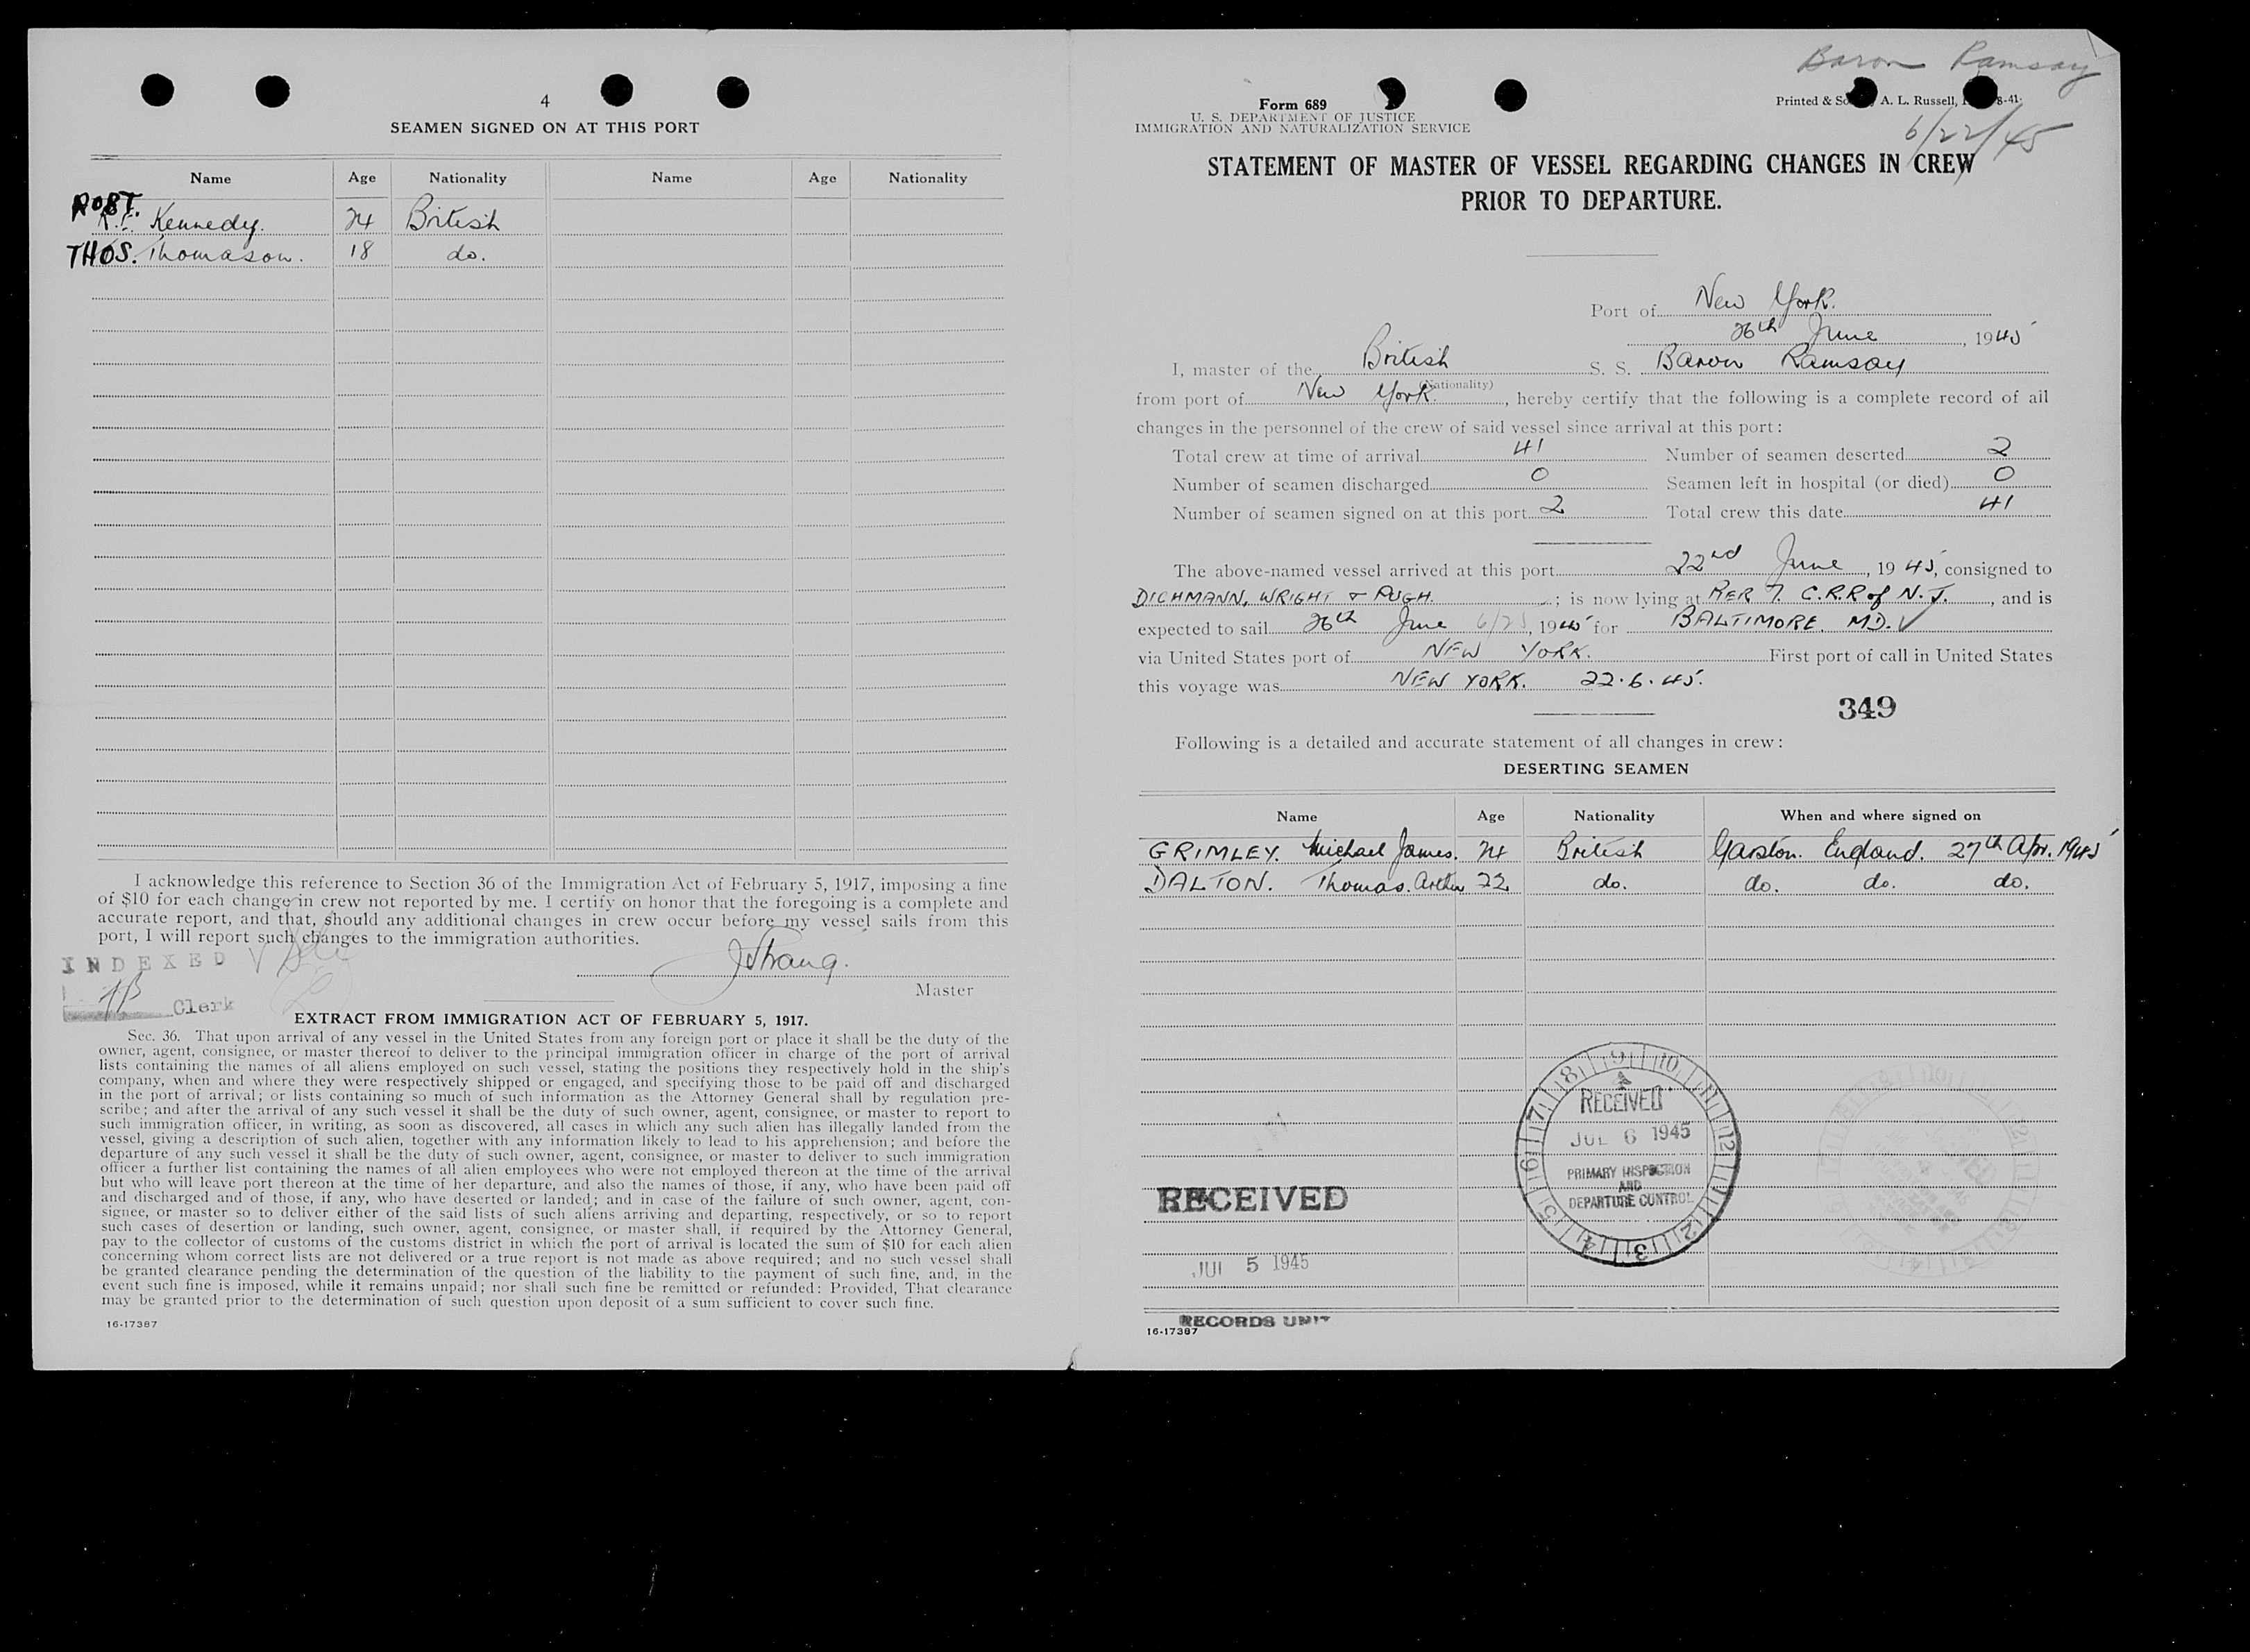 4
SEAMEN SIGNED ON AT THIS PORT
Name Age Nationality Name Age Nationality
ROBT. Kennedy. 24 British
THOS. Thomason. 18 do.
I acknowledge this reference to Section 36 of the Immigration Act of February 5, 1917, imposing a fine
of $10 for each change in crew not reported by me. I certify on honor that the foregoing is a complete and
accurate report, and that, should any additional changes in crew occur before my vessel sails from this
port, I will report such changes to the immigration authorities.
INDEXED
Clerk
JStrang.
Master
EXTRACT FROM IMMIGRATION ACT OF FEBRUARY 5, 1917.
Sec. 36. That upon arrival of any vessel in the United States from any foreign port or place it shall be the duty of the
owner, agent, consignee, or master thereof to deliver to the principal immigration officer in charge of the port of arrival
lists containing the names of all aliens employed on such vessel, stating the positions they respectively hold in the ship's
company, when and where they were respectively shipped or engaged, and specifying those to be paid off and discharged
in the port of arrival; or lists containing so much of such information as the Attorney General shall by regulation pre-
scribe; and after the arrival of any such vessel it shall be the duty of such owner, agent, consignee, or master to report to
such immigration officer, in writing, as soon as discovered, all cases in which any such alien has illegally landed from the
vessel, giving a description of such alien, together with any information likely to lead to his apprehension; and before the
departure of any such vessel it shall be the duty of such owner, agent, consignee, or master to deliver to such immigration
officer a further list containing the names of all alien employees who were not employed thereon at the time of the arrival
but who will leave port thereon at the time of her departure, and also the names of those, if any, who have been paid off
and discharged and of those, if any, who have deserted or landed; and in case of the failure of such owner, agent, con-
signee, or master so to deliver either of the said lists of such aliens arriving and departing, respectively, or so to report
such cases of desertion or landing, such owner, agent, consignee, or master shall, if required by the Attorney General,
pay to the collector of customs of the customs district in which the port of arrival is located the sum of $10 for each alien
concerning whom correct lists are not delivered or a true report is not made as above required; and no such vessel shall
be granted clearance pending the determination of the question of the liability to the payment of such fine, and, in the
event such fine is imposed, while it remains unpaid; nor shall such fine be remitted or refunded: Provided, That clearance
may be granted prior to the determination of such question upon deposit of a sum sufficient to cover such fine.
16-17387
Baron Ramsay
Form 689
Printed & So A. L. Russell, 8-41
U. S. DEPARTMENT OF JUSTICE
IMMIGRATION AND NATURALIZATION SERVICE
6/22/45
STATEMENT OF MASTER OF VESSEL REGARDING CHANGES IN CREW
PRIOR TO DEPARTURE.
Port of New York.
26th June, 1945
I, master of the British S. S. Baron Ramsay
(Nationality)
from port of New York., hereby certify that the following is a complete record of all
changes in the personnel of the crew of said vessel since arrival at this port:
Total crew at time of arrival 41 Number of seamen deserted 2
Number of seamen discharged 0 Seamen left in hospital (or died) 0
Number of seamen signed on at this port 2 Total crew this date 41
The above-named vessel arrived at this port 22nd June, 1945, consigned to
DICHMANN, WRIGHT & PUGH.; is now lying at PIER 7. C.R.R of N.J., and is
expected to sail 26th June 6/25, 1945 for BALTIMORE. MD. ✓
via United States port of NEW YORK. First port of call in United States
this voyage was NEW YORK. 22.6.45.
349
Following is a detailed and accurate statement of all changes in crew:
DESERTING SEAMEN
Name Age Nationality When and where signed on
GRIMLEY. Michael James. 24 British Garston. England. 27th Apr. 1945
DALTON. Thomas. Arthur 22 do. do. do. do.
9 10 11 12 1 2 3 4 5 6 7 8
RECEIVED
JUL 6 1945
PRIMARY INSPECTION
AND
DEPARTURE CONTROL
RECEIVED
JUL 5 1945
RECORDS UNIT
16-17387